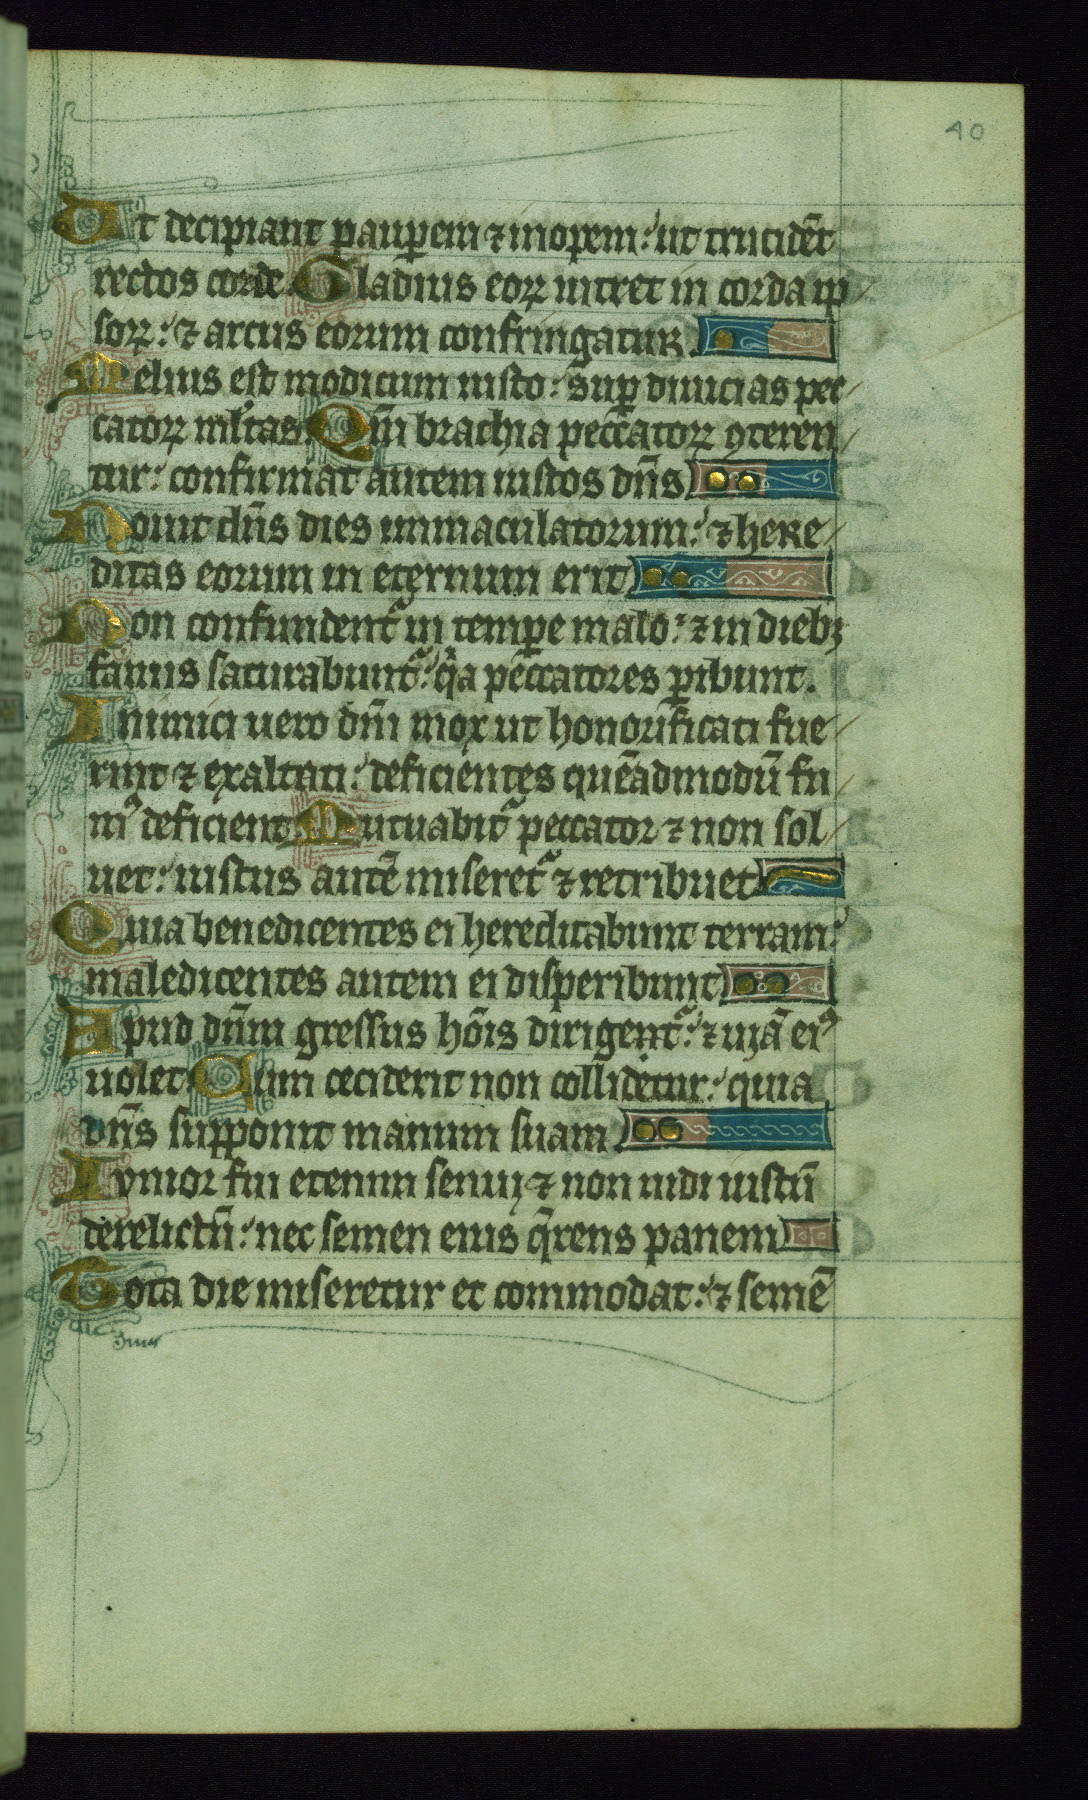 40
Ut decipiant paup̱em ⁊ inopem: ut trucidēt
rectos corde. Gladius eoꝝ intret in corda ip
soꝝ: ⁊ arcus eorum confringatur.
Melius est modicum iusto: sup̱ diuicias pec
catoꝝ mͣltas. Qm̄ brachia peccatoꝝ ꝯteren
tur: confirmat autem iustos dn̄s
Nouit dn̄s dies immaculatorum: ⁊ here
ditas eorum in eternum erit
Non confundent᷑ in temp̱e malo: ⁊ in diebꝫ
famis saturabunt᷑: q̄a peccatores ꝑibunt.
Inimici uero dn̄i mox ut honorificati fue
rint ⁊ exaltati: deficientes quēadmodū fu
m᷑ deficient. Mutuabit᷑ peccator ⁊ non sol
uet: iustus autē miseret᷑ ⁊ retribuet
Quia benedicentes ei hereditabunt terram:
maledicentes autem ei disperibunt
Apud dn̄m gressus hōis dirigent᷑: ⁊ uiā eiꝰ
uolet. Cum ceciderit non collidetur: quia
dn̄s supponit manum suam
Iunior fui etenim senui ⁊ non uidi iustū
derelictū: nec semen eius q̄rens panem
Tota die miseretur et commodat: ⁊ semē